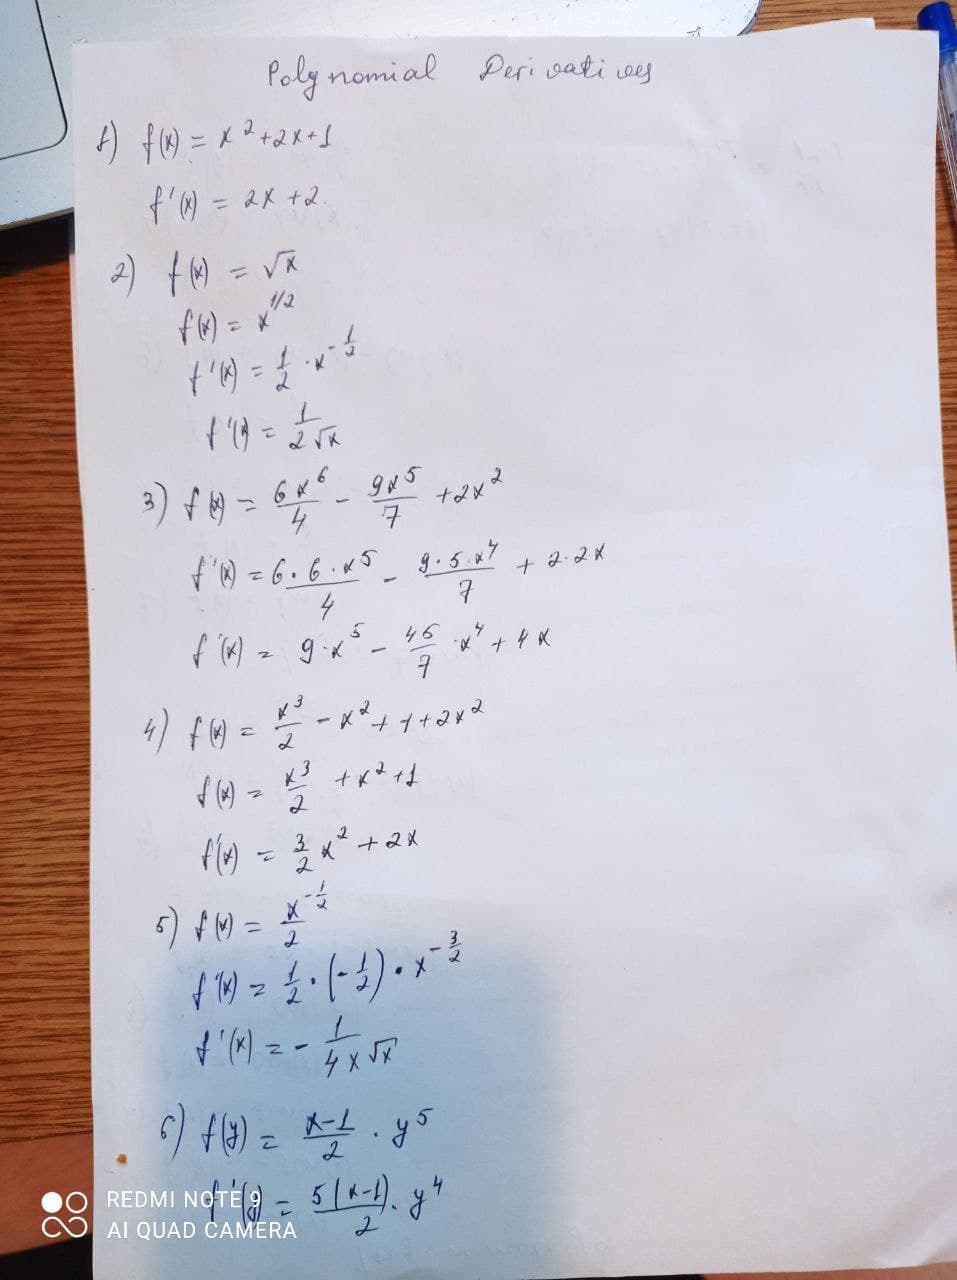 Polynomial Derivatives
1) f(x) = x² + 2x + 1
f'(x) = 2x + 2
2) f(x) = √x
f(x) = x^{1/2}
f'(x) = \frac{1}{2} · x^{-\frac{1}{2}}
f'(x) = \frac{1}{2√x}
3) f(x) = \frac{6x^6}{4} - \frac{9x^5}{7} + 2x²
f'(x) = \frac{6·6·x^5}{4} - \frac{9·5·x^4}{7} + 2·2x
f'(x) = 9·x^5 - \frac{45}{7}·x^4 + 4x
4) f(x) = \frac{x³}{2} - x² + 1 + 2x²
f(x) = \frac{x³}{2} + x² + 1
f'(x) = \frac{3}{2}x² + 2x
5) f(x) = \frac{x^{-\frac{1}{2}}}{2}
f'(x) = \frac{1}{2}·(-\frac{1}{2})·x^{-\frac{3}{2}}
f'(x) = -\frac{1}{4x√x}
6) f(y) = \frac{x-1}{2} · y^5
f'(y) = \frac{5(x-1)}{2} · y^4
REDMI NOTE 9
AI QUAD CAMERA